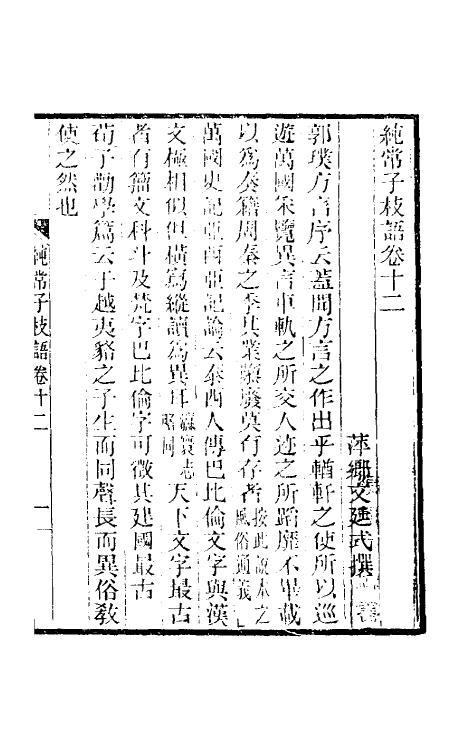 純常子枝語卷十二
萍鄉文廷式撰
郭璞方言序云葢聞方言之作出乎輶軒之使所以巡
遊萬國采覽異言車軌之所交人迹之所蹈靡不畢載
以爲奏籍周秦之季其業隳發莫有存者按此說本之風俗通義
萬國史記亞西亞記論云泰西人傳巴比倫文字與漢
文極相似但橫寫縱讀爲異耳瀛寰志略同天下文字最古
者有籀文科斗及梵字巴比倫字可徵其建國最古
荀子勸學篇云于越夷貉之子生而同聲長而異俗敎
使之然也
純常子枝語卷十二
一